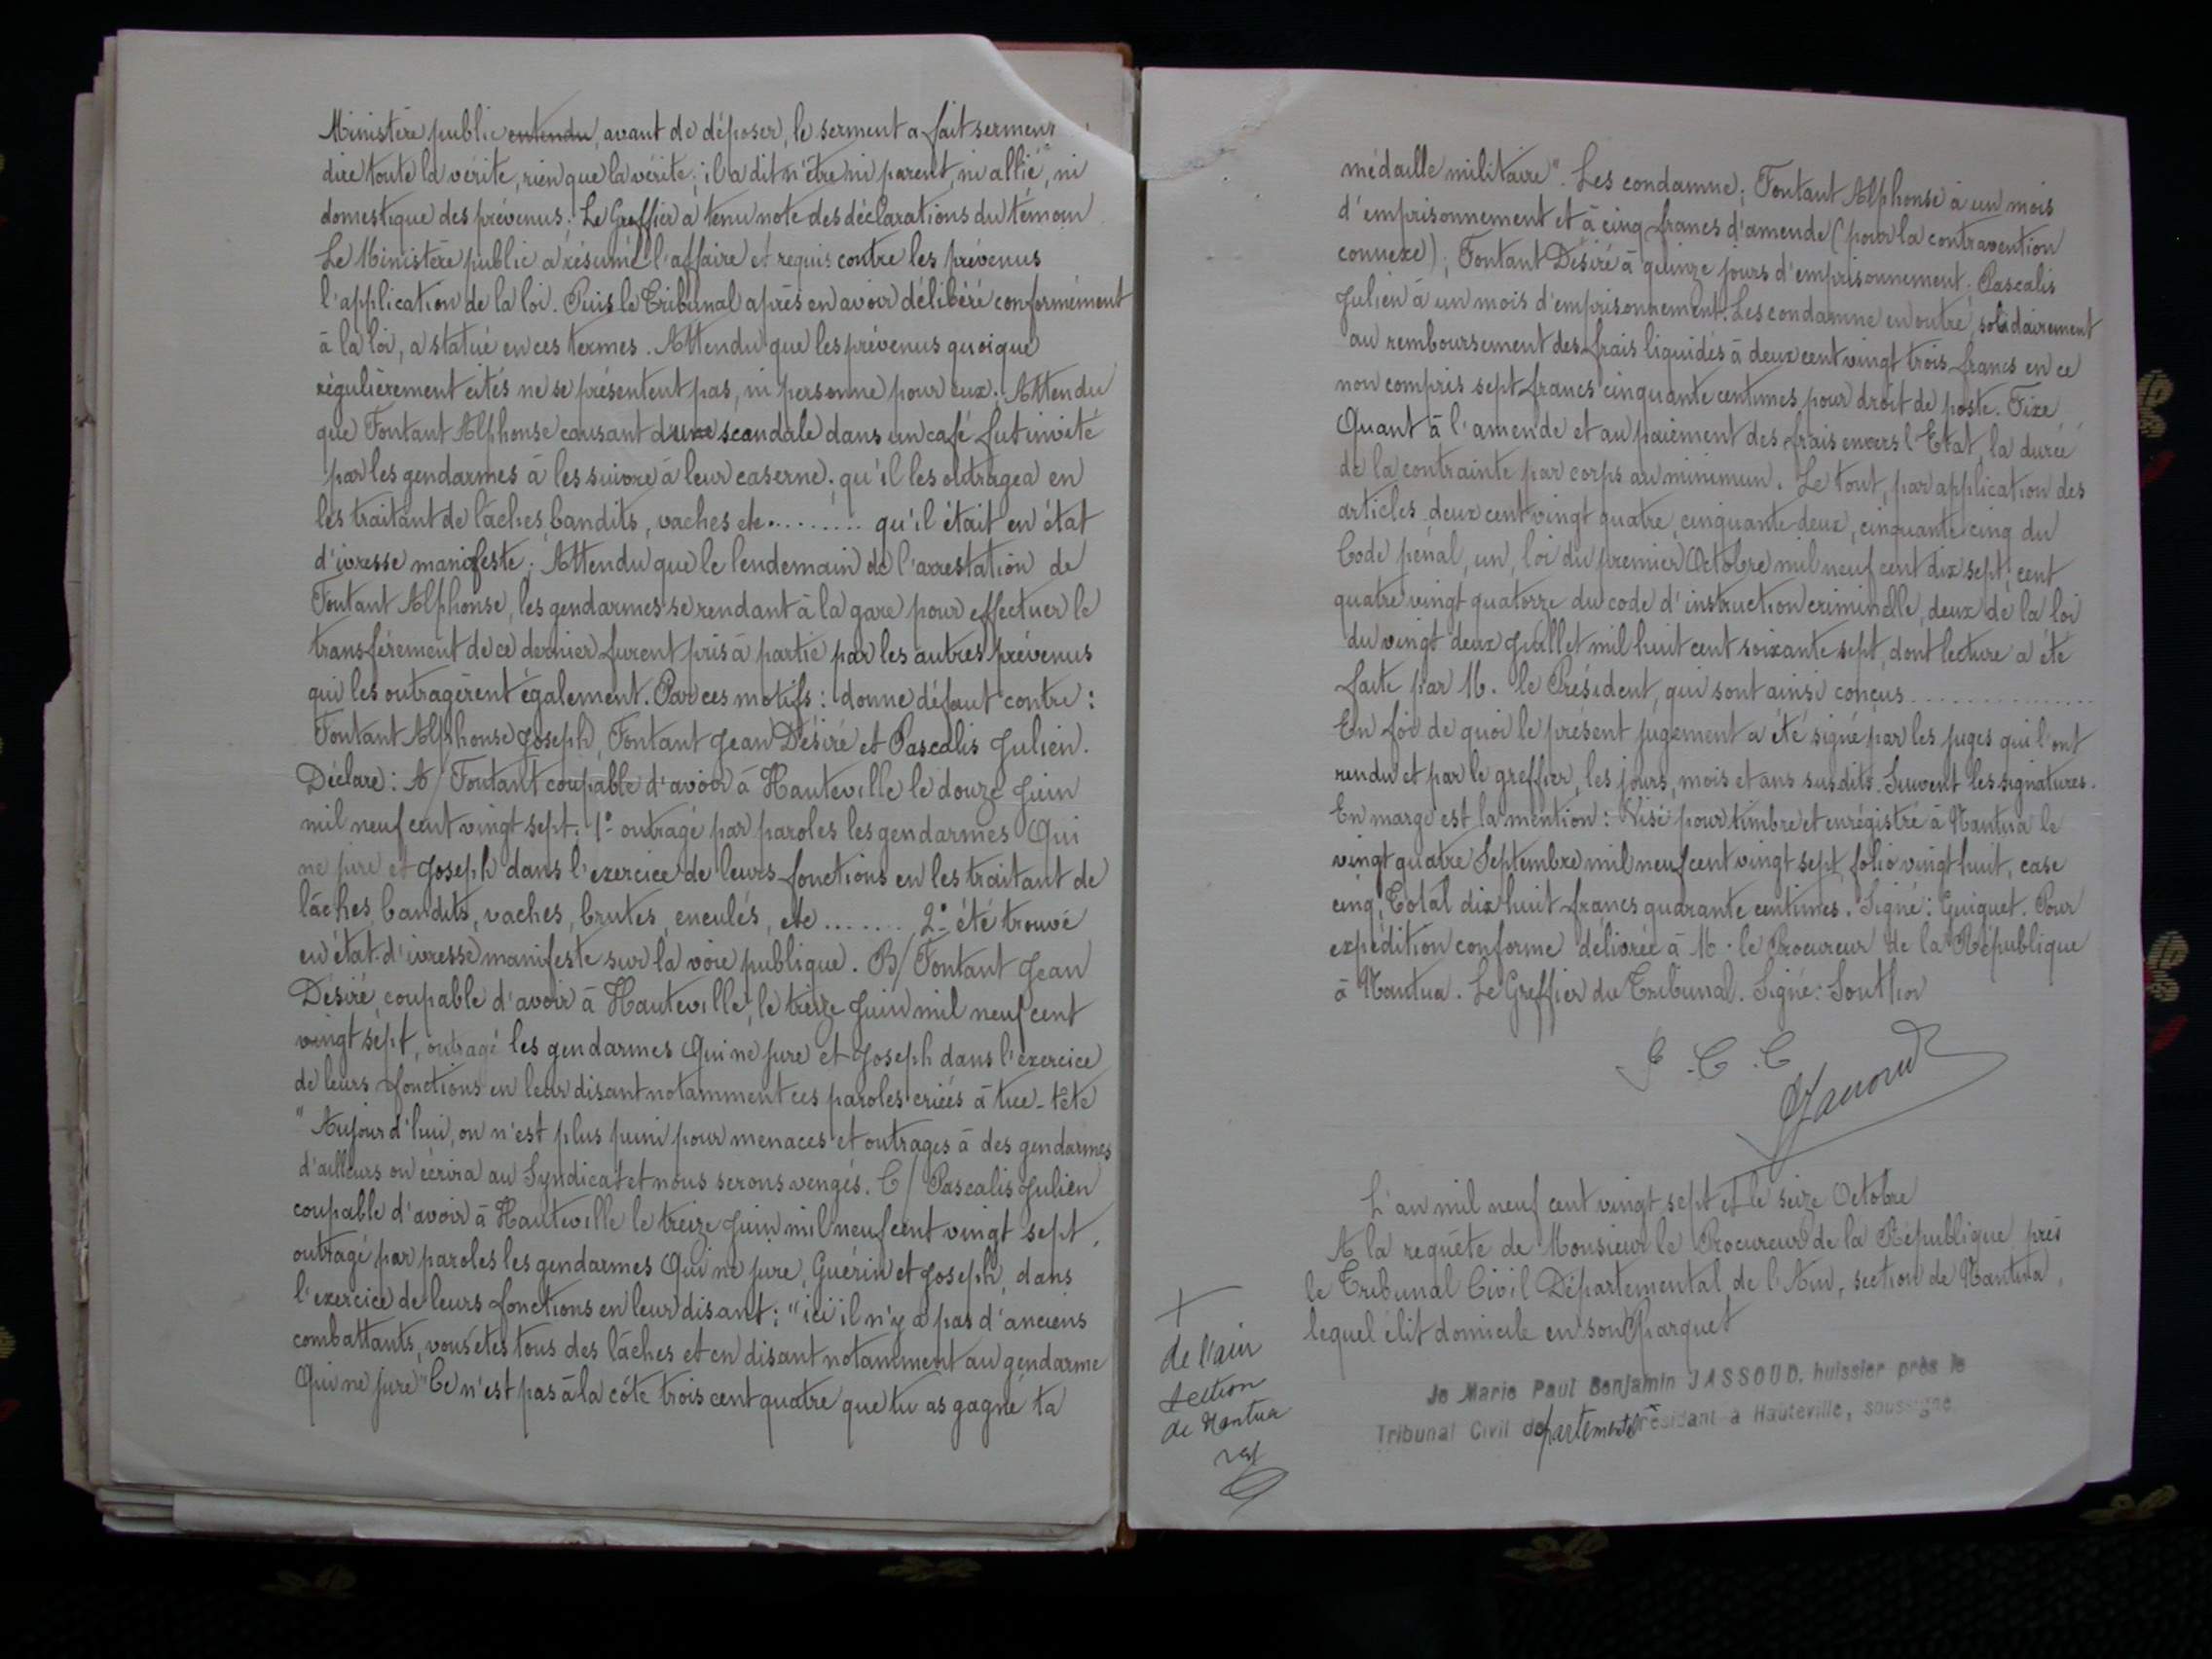 Ministère public entendu, avant de déposer, le serment a fait serment
dire toute la vérité, rien que la vérité; il a dit n'être ni parent, ni allié, ni
domestique des prévenus. Le Greffier a tenu note des déclarations du témoin
Le Ministère public a résumé l'affaire et requis contre les prévenus
l'application de la loi. Puis le Tribunal après en avoir délibéré conformément
à la loi, a statué en ces termes. Attendu que les prévenus quoique
régulièrement cités ne se présentent pas, ni personne pour eux. Attendu
que Fontant Alphonse causant du scandale dans un café fut invité
par les gendarmes à les suivre à leur caserne; qu'il les outragea en
les traitant de lâches, bandits, vaches etc......... qu'il était en état
d'ivresse manifeste; Attendu que le lendemain de l'arrestation de
Fontant Alphonse, les gendarmes se rendant à la gare pour effectuer le
transfèrement de ce dernier furent pris à partie par les autres prévenus
qui les outragèrent également. Par ces motifs: donne défaut contre:
Fontant Alphonse Joseph, Fontant Jean Désiré et Pascalis Julien.
Déclare: A/ Fontant coupable d'avoir à Hauteville le douze Juin
mil neuf cent vingt sept. 1° outragé par paroles les gendarmes Qui
ne jure et Joseph dans l'exercice de leurs fonctions en les traitant de
lâches, bandits, vaches, brutes, enculés, etc ....... 2° été trouvé
en état d'ivresse manifeste sur la voie publique. B/ Fontant Jean
Désiré, coupable d'avoir à Hauteville, le treize Juin mil neuf cent
vingt sept, outragé les gendarmes Qui ne jure et Joseph dans l'exercice
de leurs fonctions en leur disant notamment ces paroles criées à tue-tête
"Aujourd'hui, on n'est plus puni pour menaces et outrages à des gendarmes
d'ailleurs on écrira au Syndicat et nous serons vengés. C/ Pascalis Julien
coupable d'avoir à Hauteville le treize Juin mil neuf cent vingt sept,
outragé par paroles les gendarmes Qui ne jure, Guérin et Joseph, dans
l'exercice de leurs fonctions en leur disant: "ici il n'y a pas d'anciens
combattants, vous êtes tous des lâches et en disant notamment au gendarme
Qui ne jure "Ce n'est pas à la côte trois cent quatre que tu as gagné ta
médaille militaire". Les condamne; Fontant Alphonse à un mois
d'emprisonnement et à cinq francs d'amende (pour la contravention
connexe); Fontant Désiré à quinze jours d'emprisonnement; Pascalis
Julien à un mois d'emprisonnement. Les condamne en outre, solidairement
au remboursement des frais liquidés à deux cent vingt trois francs en ce
non compris sept francs cinquante centimes pour droit de poste. Fixe
Quant à l'amende et au paiement des frais envers l'Etat, la durée
de la contrainte par corps au minimun. Le tout, par application des
articles deux cent vingt quatre, cinquante deux, cinquante cinq du
Code pénal, un, loi du premier Octobre mil neuf cent dix sept, cent
quatre vingt quatorze du code d'instruction criminelle, deux de la loi
du vingt deux Juillet mil huit cent soixante sept, dont lecture a été
faite par M. le Président, qui sont ainsi conçus...............
En foi de quoi le présent jugement a été signé par les juges qui l'ont
rendu et par le greffier, les jours, mois et ans susdits. Suivent les signatures.
En marge est la mention: Visé pour timbre et enrégistré à Nantua le
vingt quatre Septembre mil neuf cent vingt sept, folio vingt huit, case
cinq, Total dix huit francs quarante centimes. Signé: Guiguet. Pour
expédition conforme délivrée à M. le Procureur de la République
à Nantua. Le Greffier du Tribunal. Signé:
P.C.C
L'an mil neuf cent vingt sept et le seize Octobre
A la requête de Monsieur le Procureur de la République près
le Tribunal Civil Départemental de l'Ain, section de Nantua,
lequel élit domicile en son Parquet
Je Marie Paul Benjamin JASSOUD, huissier près le
Tribunal Civil départemental résidant à Hauteville, soussigné,
+
de l'ain
section
de Nantua